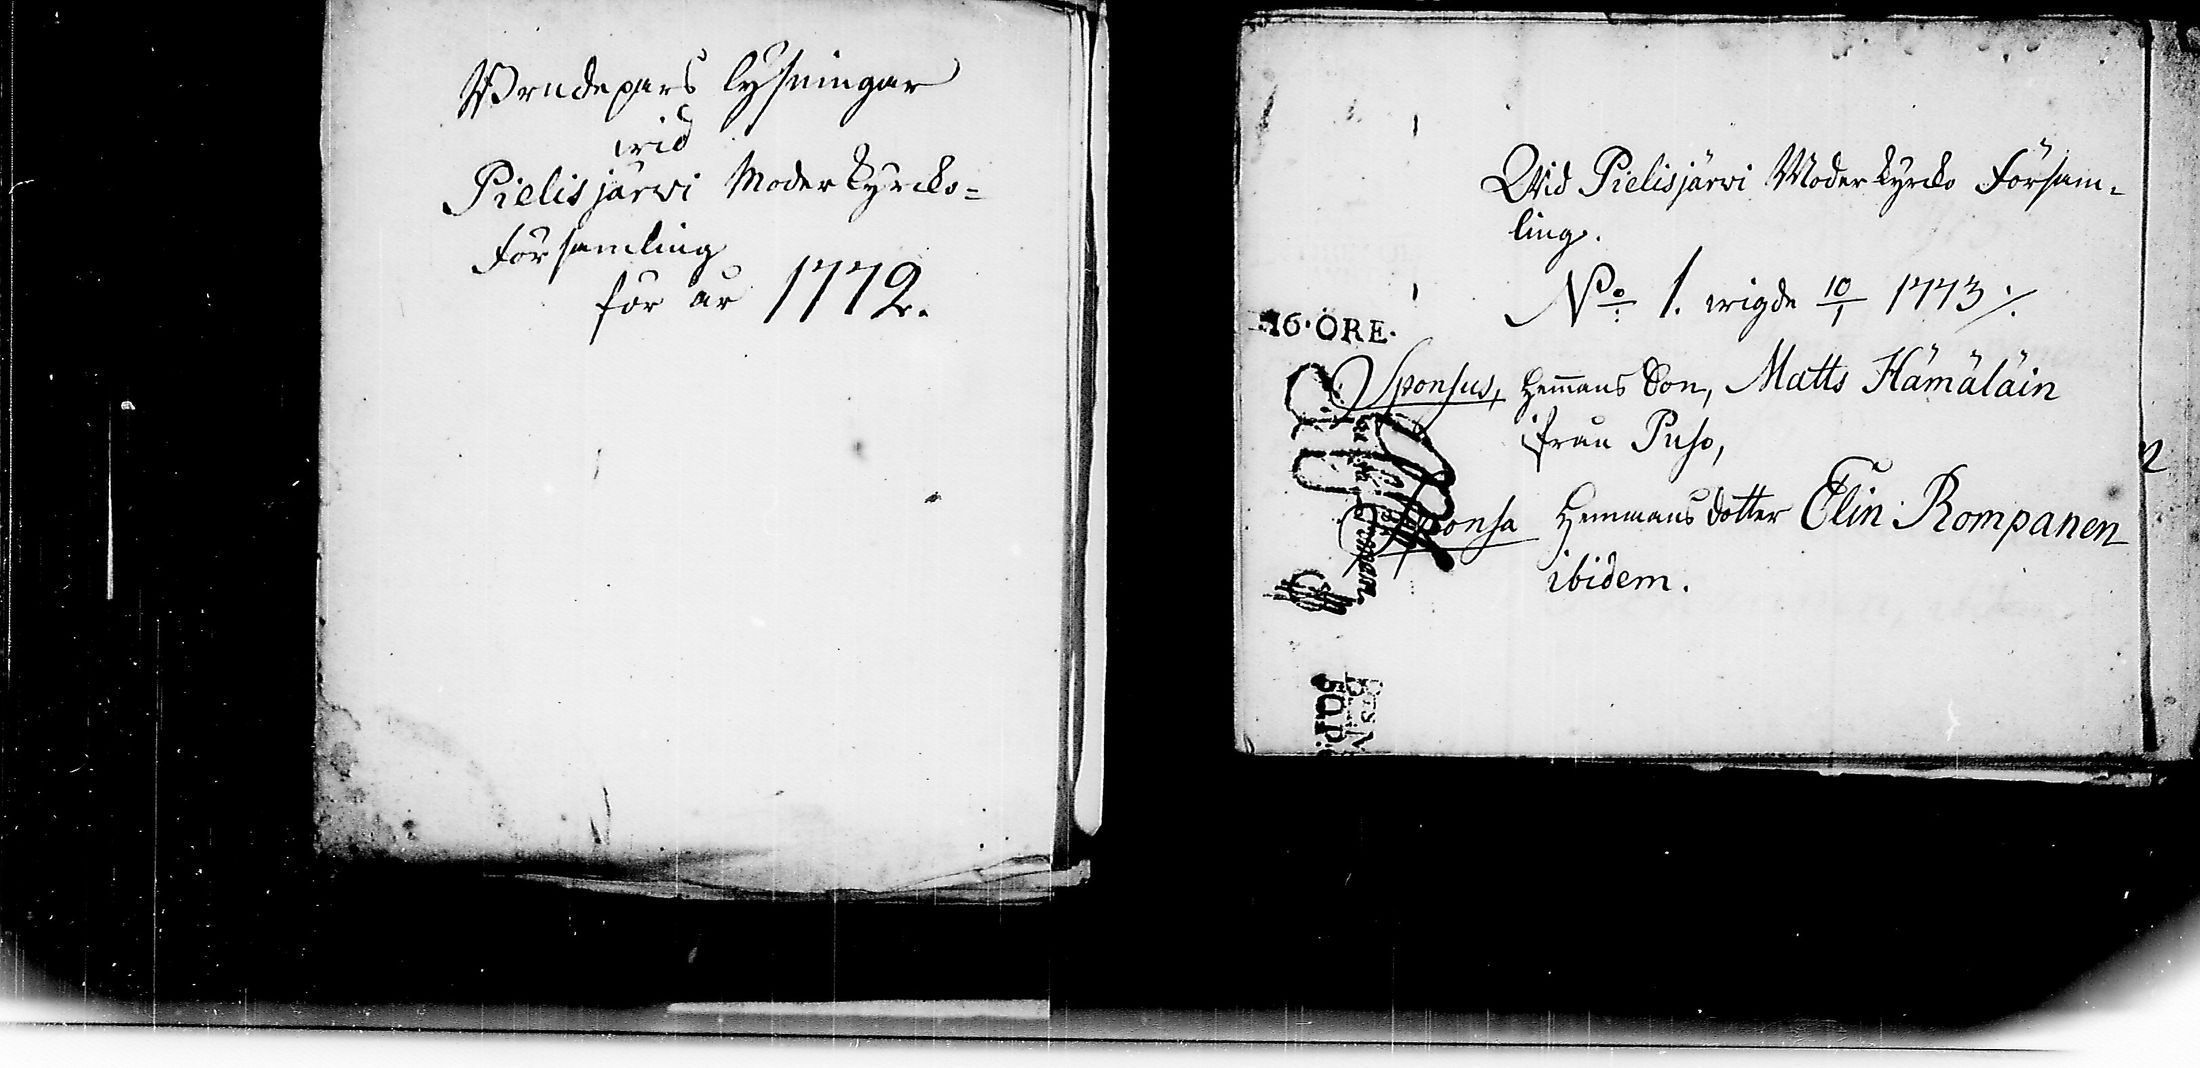 Brudepars lysningar
wid
Pielisjärwi Moderkyrcko=
församling
för år 1772.
Wid Pielisjärwi Moderkyrcko Försam=
ling.
No 1. wigde 10/1 1773 ⁒
16·ÖRE·
Sponsus, Hem̅ans Son, Matts Hämäläin
ifrån Puso,
Sponsa Hemmans dotter Elin Rompanen
ibidem.
2